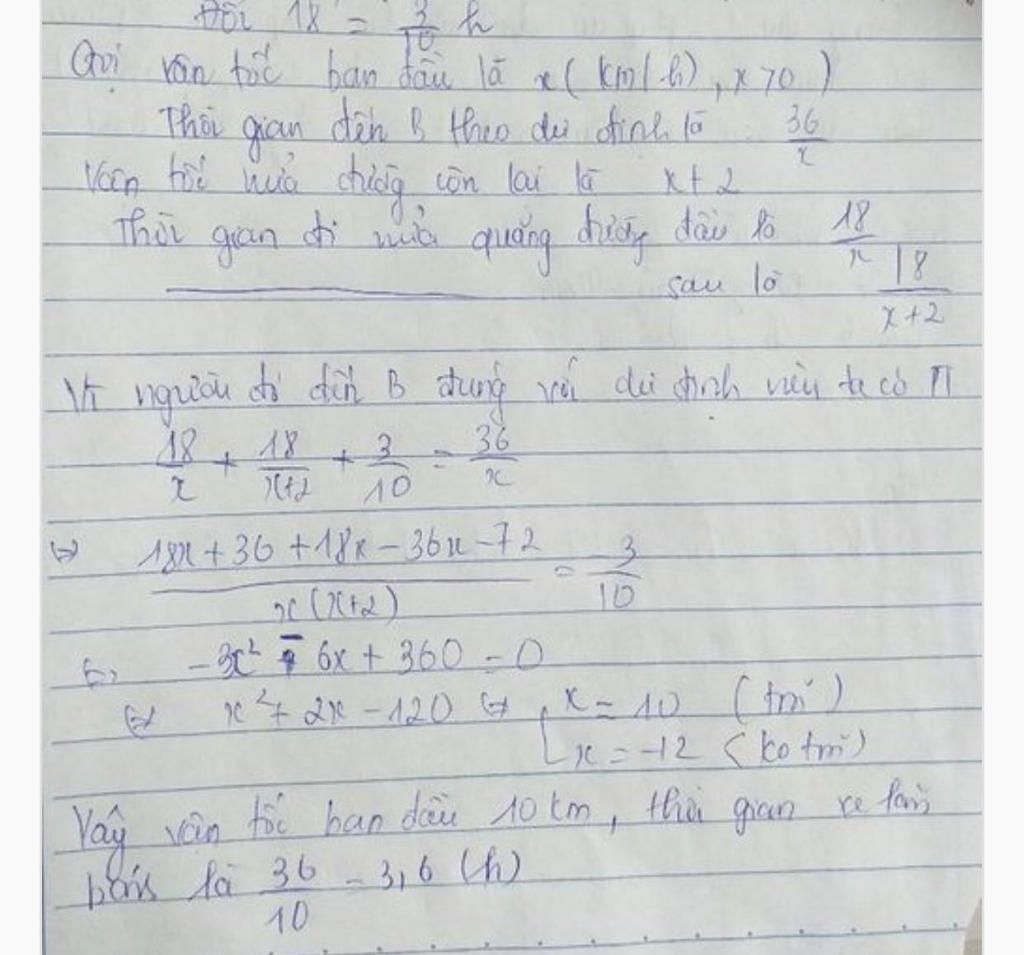 Đổi 18' = 3/10 h
Gọi vân tốc ban đầu là x (km/h), x>0)
Thời gian đến B theo dự định là 36/x
Vân tốc nửa đường còn lai là x+2
Thời gian đi nửa quãng đường đầu là 18/x
sau là 18/(x+2)
Vì người đi đến B đúng với dự định nên ta có PT
18/x + 18/(x+2) + 3/10 = 36/x
⇔ (18x+36+18x-36x-72)/(x(x+2)) = -3/10
⇔ -3x² - 6x + 360 = 0
⇔ x² + 2x - 120 ⇔ [ x = 10 (tm)
x = -12 (ko tm)
Vây vân tốc ban đầu 10 km, thời gian xe lăn
bánh là 36/10 = 3,6 (h)